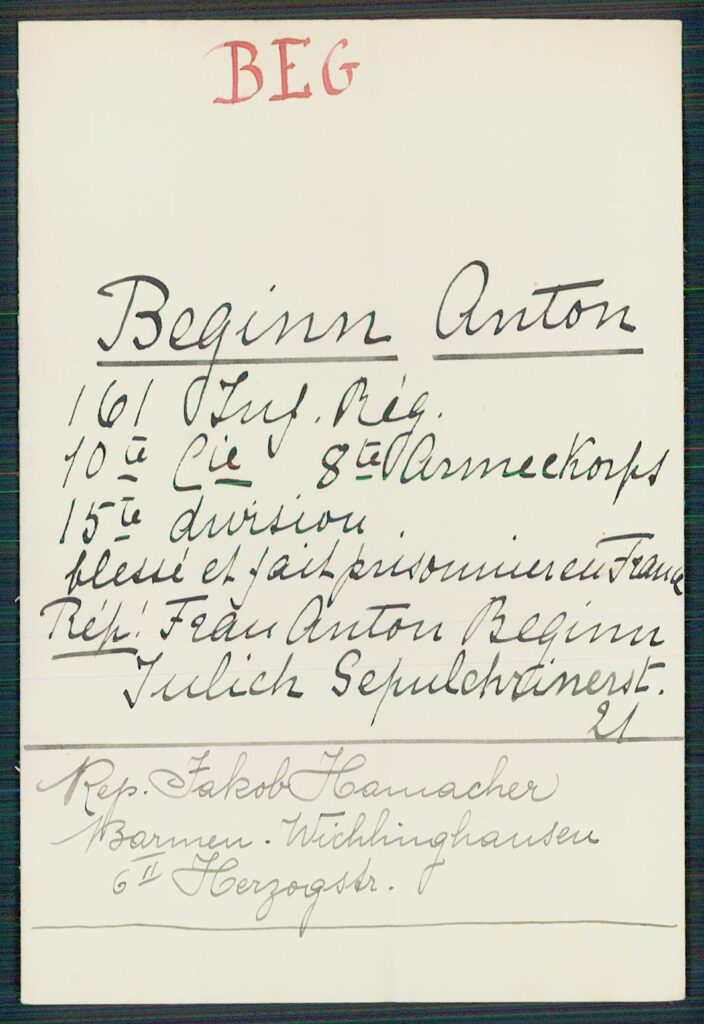 BEG
Beginn Anton
161 Inf. Rég.
10te Cie 8te Armeekorps
15te division
blessé et fait prisonnier en France
Rép! Frau Anton Beginn
Julich Sepulchrinerst.
21
Rep. Jakob Hamacher
Barmen. Wichlinghausen
6 II Herzogstr.